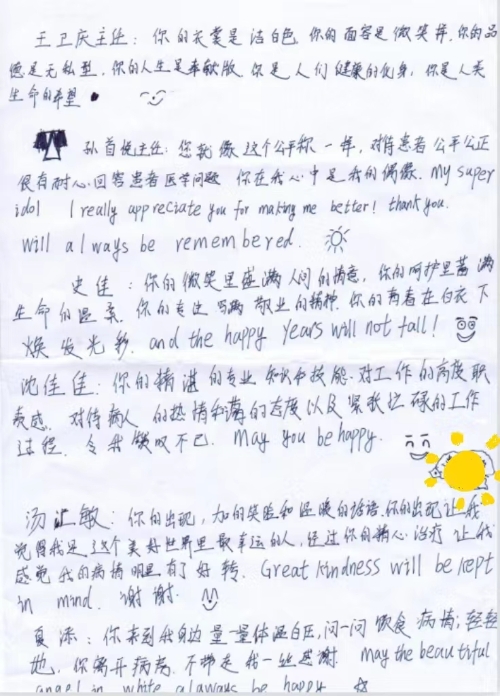 王卫庆主任：你的衣裳是洁白色，你的面容是微笑样，你的品
德是无私型，你的人生是奉献版，你是人们健康的化身，你是人类
生命的希望
孙首悦主任：您就像这个公平称一样，对待患者公平公正
很有耐心回答患者医学问题 你在我心中是我的偶像. My super
idol I really appreciate you for making me better! thank you.
will always be remembered.
史佳：你的微笑里盛满人间的情意，你的呵护里蓄满
生命的，你的专注写满敬业的精神，你的青春在白衣下
焕发光彩. and the happy years will not fall!
沈佳佳：你的精湛的专业知识和技能，对工作的高度职
责感，对待病人的热情和蔼的态度以及紧张忙碌的工作
过程，令我惊叹不已. May you be happy.
汤敏：你的出现，的笑脸和温暖的话语，你的出现让我
觉得我是这个美好世界里最幸运的人，经过你的精心治疗让我
感觉我的病情明显有了好转. Great kindness will be kept
in mind. 谢谢.
夏：你来到我身边量一量体温血压，问一问饮食病情；轻轻
地，你离开病房，不带走我一丝感谢. may the beautiful
angel in white always be happy